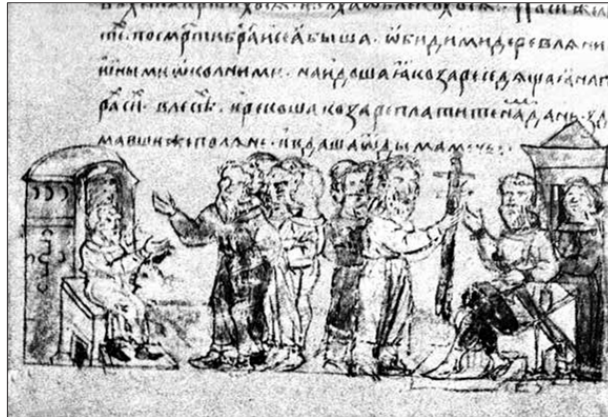 Посиⷯжелѣ
те. посмр҃тибраⷮисеабыша. ѡбидимидеревлѧни
инымиѡколними. наидошаꙗкозареседѧщаꙗнаго
раⷯсиⷯ. влесѣⷯ. ирекошакозареплатитенаⷨдань. здꙋ
мавшижеполѧне. ивдашаѿдымамечь